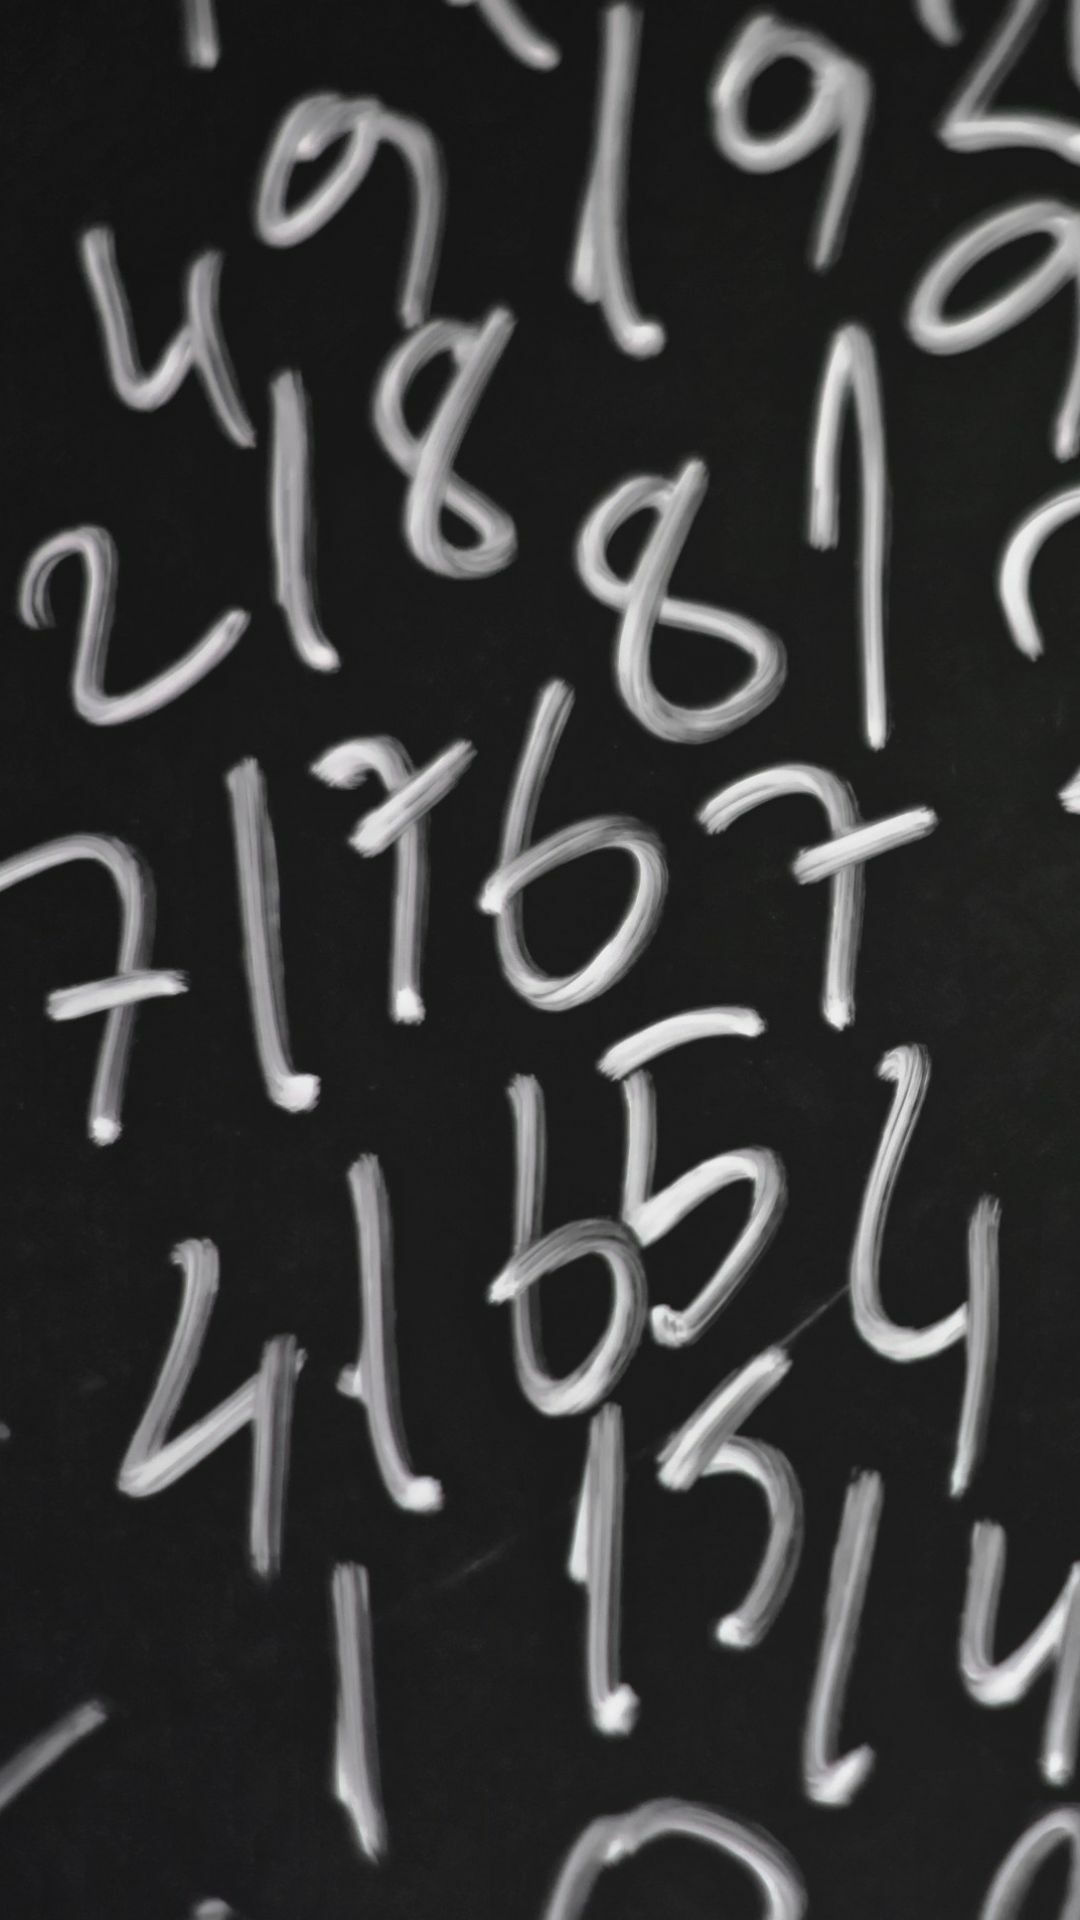 9 1 9 2
4 1 8 8 1 9
2
7 1 7 6 7
4 1 6 5 4
1 1 5 1 4